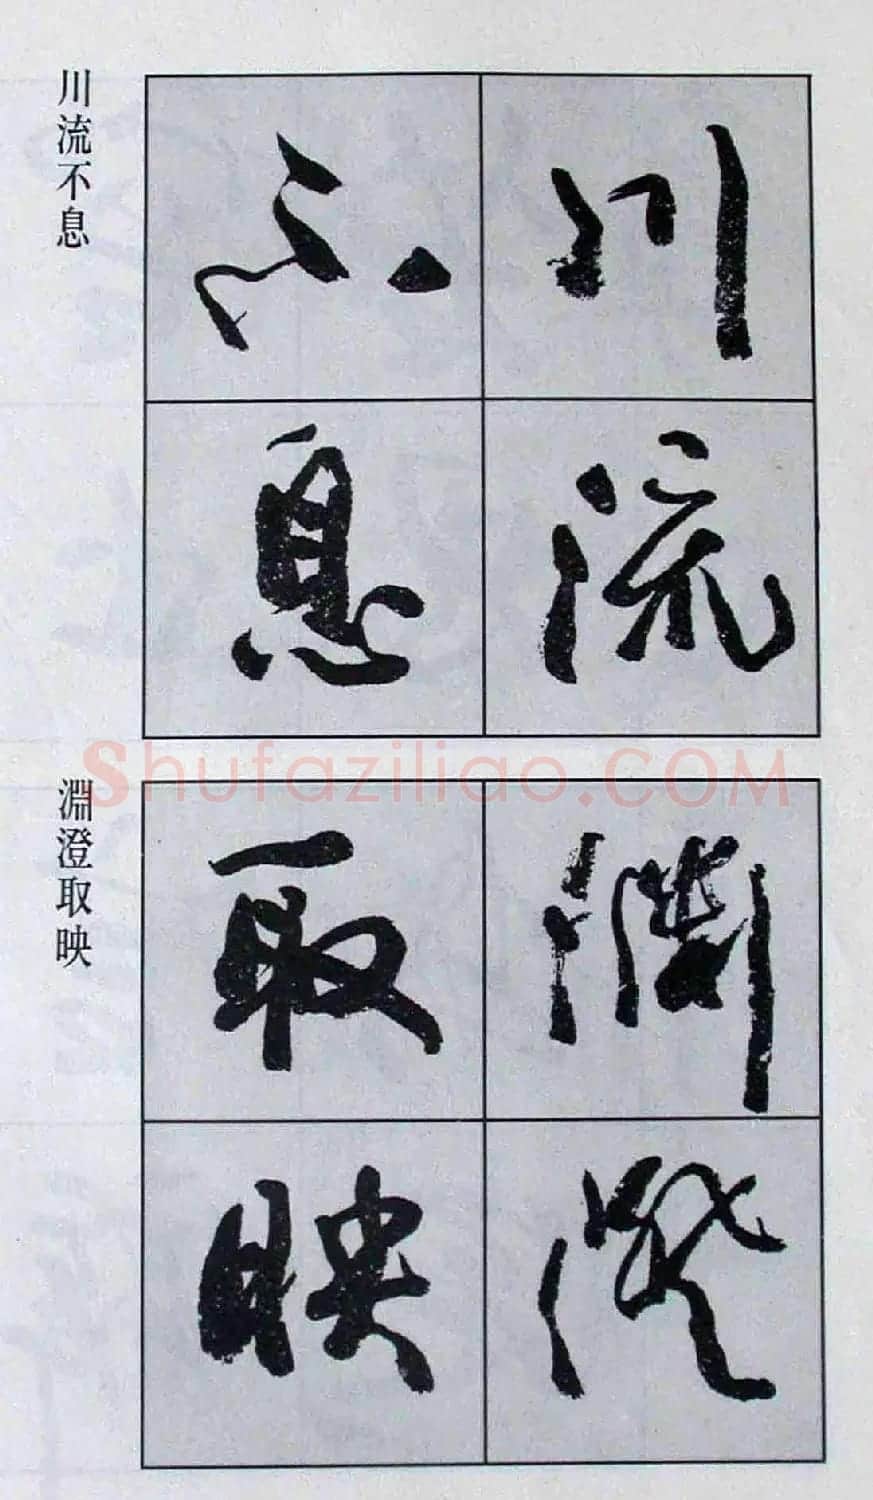 川流不息
川流
不息
Shufaziliao.COM
淵澄取映
淵澄
取映